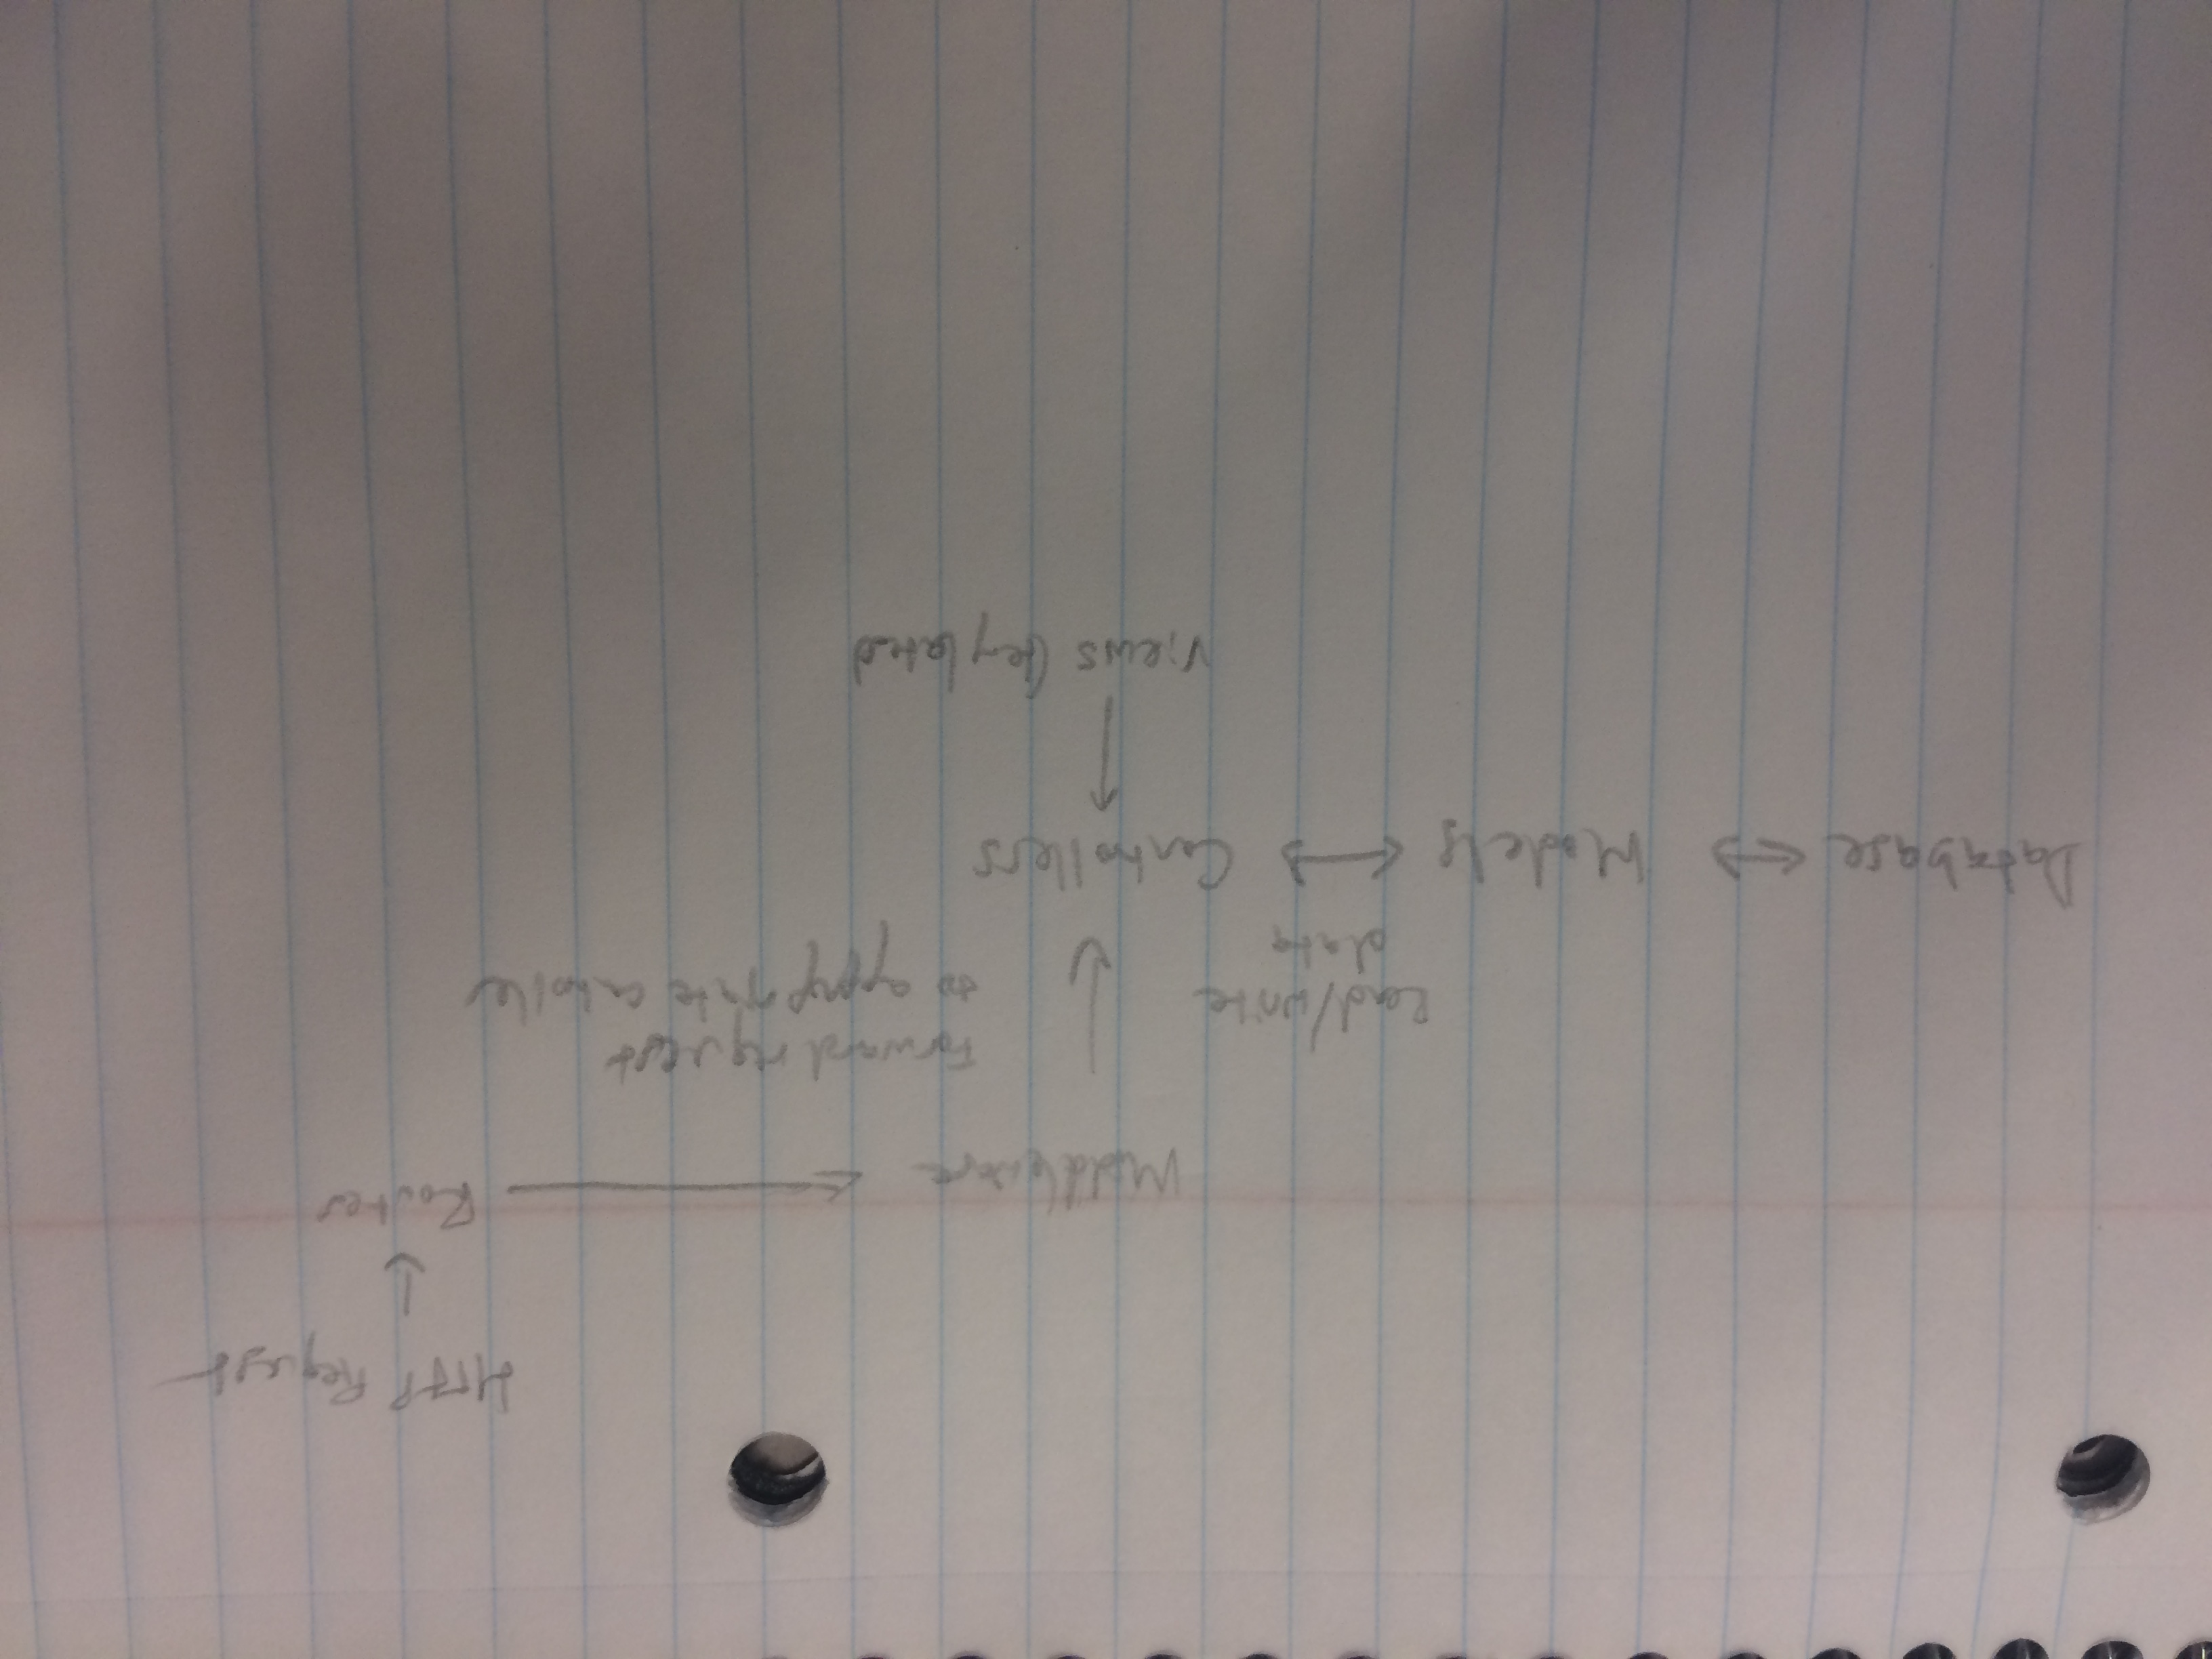 HTTP Request
Router
Middleware
Forward request
to appropriate controller
Read/write
data
Database
Models
Controllers
Views (templates)